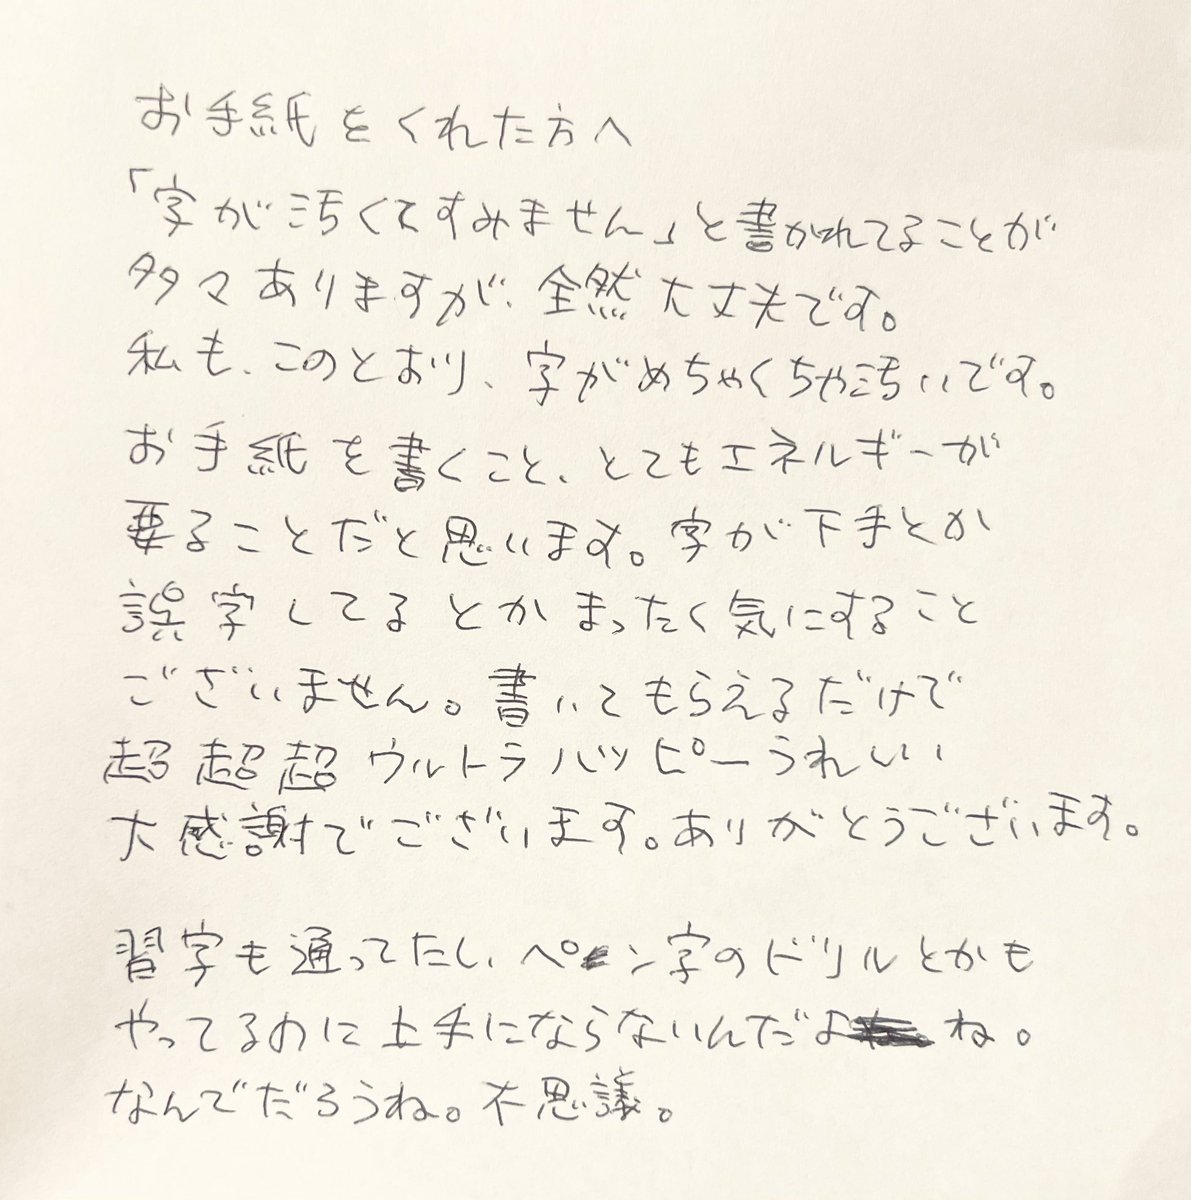 お手紙をくれた方へ
「字が汚くてすみません」と書かれてることが
多々ありますが、全然大丈夫です。
私も、このとおり、字がめちゃくちゃ汚いです。
お手紙を書くこと、とてもエネルギーが
要ることだと思います。字が下手とか
誤字してるとかまったく気にすること
ございません。書いてもらえるだけで
超超超ウルトラハッピーうれしい
大感謝でございます。ありがとうございます。
習字も通ってたし、ペン字のドリルとかも
やってるのに上手にならないんだよね。
なんでだろうね。不思議。